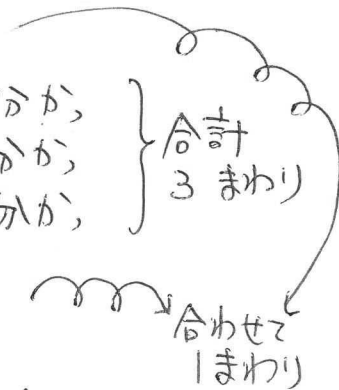 分か、
分か、
分か、
合計
3 まわり
合わせて
1まわり